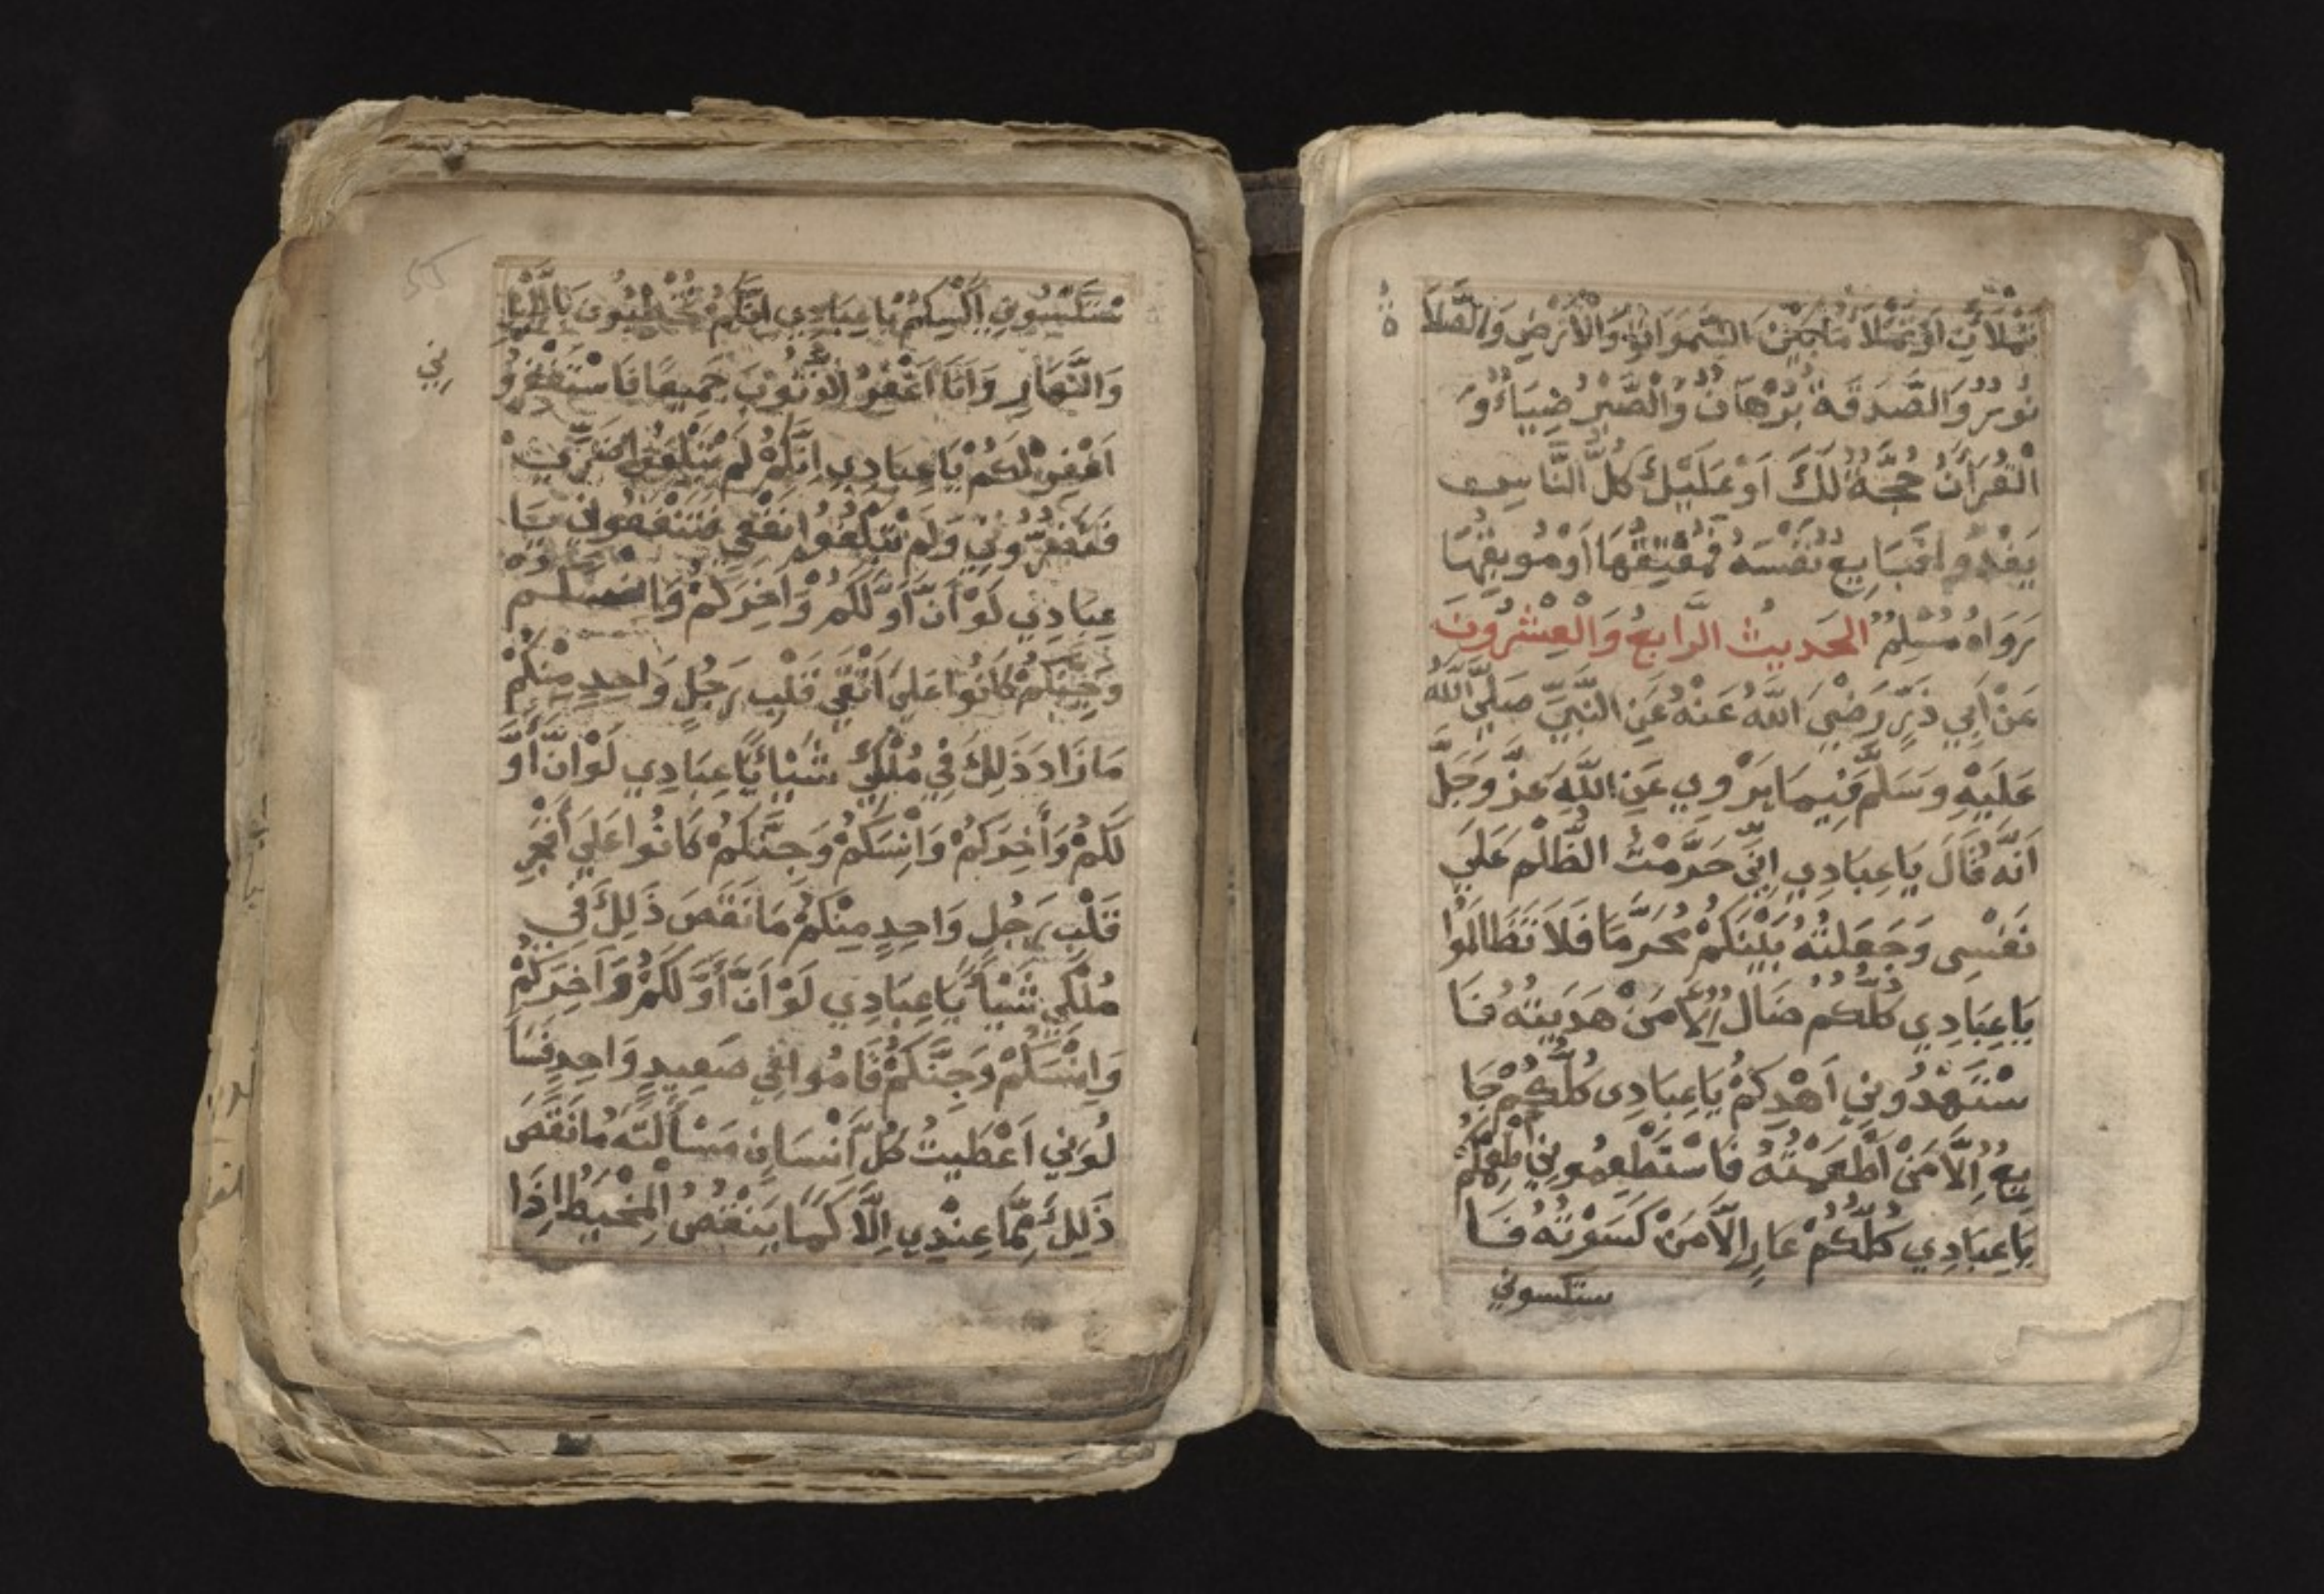 تَمْلَآنِ اَوْ تَمْلَأُ مَا بَيْنَ السَّمٰوَاتِ وَالْاَرْضِ وَالصَّلَا
ةُ
نُورٌ وَالصَّدَقَةُ بُرْهَانٌ وَالصَّبْرُ ضِيَاءٌ وَ
الْقُرْاَنُ حُجَّةٌ لَكَ اَوْ عَلَيْكَ كُلُّ النَّاسِ
يَغْدُو فَبَايِعٌ نَفْسَهُ فَمُعْتِقُهَا اَوْ مُوبِقُهَا
رَوَاهُ مُسْلِمٌ الحَدِيثُ الرَّابِعُ وَالْعِشْرُونَ
عَنْ اَبِي ذَرٍّ رَضِيَ اللَّهُ عَنْهُ عَنِ النَّبِيِّ صَلَّي اللَّهُ
عَلَيْهِ وَسَلَّمَ فِيمَا يَرْوِي عَنِ اللَّهِ عَزَّ وَجَلَّ
اَنَّهُ قَالَ يَاعِبَادِي اِنِّي حَرَّمْتُ الظُّلْمَ عَلَي
نَفْسِي وَجَعَلْتُهُ بَيْنَكُمْ مُحَرَّمًا فَلَا تَظَالَمُوا
يَاعِبَادِي كُلُّكُمْ ضَالٌّ اِلَّا مَنْ هَدَيْتُهُ فَا
سْتَهْدُونِي اَهْدِكُمْ يَاعِبَادِي كُلُّكُمْ جَا
يِعٌ اِلَّا مَنْ اَطْعَمْتُهُ فَاسْتَطْعِمُونِي اُطْعِمْكُمْ
يَاعِبَادِي كُلُّكُمْ عَارٍ اِلَّا مَنْ كَسَوْتُهُ فَا
ستكسوني
سْتَكْسُونِي اَكْسِكُمْ يَاعِبَادِي اِنَّكُمْ تُخْطِيُونَ بِاللَّيْلِ
وَالنَّهَارِ وَاَنَا اَغْفِرُ الذُّنُوبَ جَمِيعًا فَاسْتَغْفِرُو
نِي
اَغْفِرْ لَكُمْ يَاعِبَادِي اِنَّكُمْ لَمْ تَبْلُغُوا ضَرِّي
فَتَضُرُّونِي وَلَمْ تَبْلُغُوا نَفْعِي فَتَنْفَعُونِي يَا
عِبَادِي لَوْ اَنَّ اَوَّلَكُمْ وَاَخِرَكُمْ وَاِنْسَكُمْ
وَجِنَّكُمْ كَانُوا عَلَي اَتْقَي قَلْبِ رَجُلٍ وَاحِدٍ مِنْكُمْ
مَا زَادَ ذَلِكَ فِي مُلْكِي شَيْاً يَاعِبَادِي لَوْ اَنَّ اَوَّ
لَكُمْ وَأَخِرَكُمْ وَاِنْسَكُمْ وَجِنَّكُمْ كَانُوا عَلَي أَفْجَرِ
قَلْبِ رَجُلٍ وَاحِدٍ مِنْكُمْ مَا نَقَصَ ذَلِكَ فِي
مُلْكِي شَيْاً يَاعِبَادِي لَوْ اَنَّ أَوَّلَكُمْ وَاَخِرَكُمْ
وَاِنْسَكُمْ وَجِنَّكُمْ قَامُوا فِي صَعِيدٍ وَاحِدٍ فَسَا
لُونِي اَعْطَيْتُ كُلَّ اِنْسَانٍ مَسْأَلَتَهُ مَا نَقَصَ
ذَلِكَ مِمَّا عِنْدِي اِلَّا كَمَا يَنْقُصُ الْمِخْيَطُ اِذَا